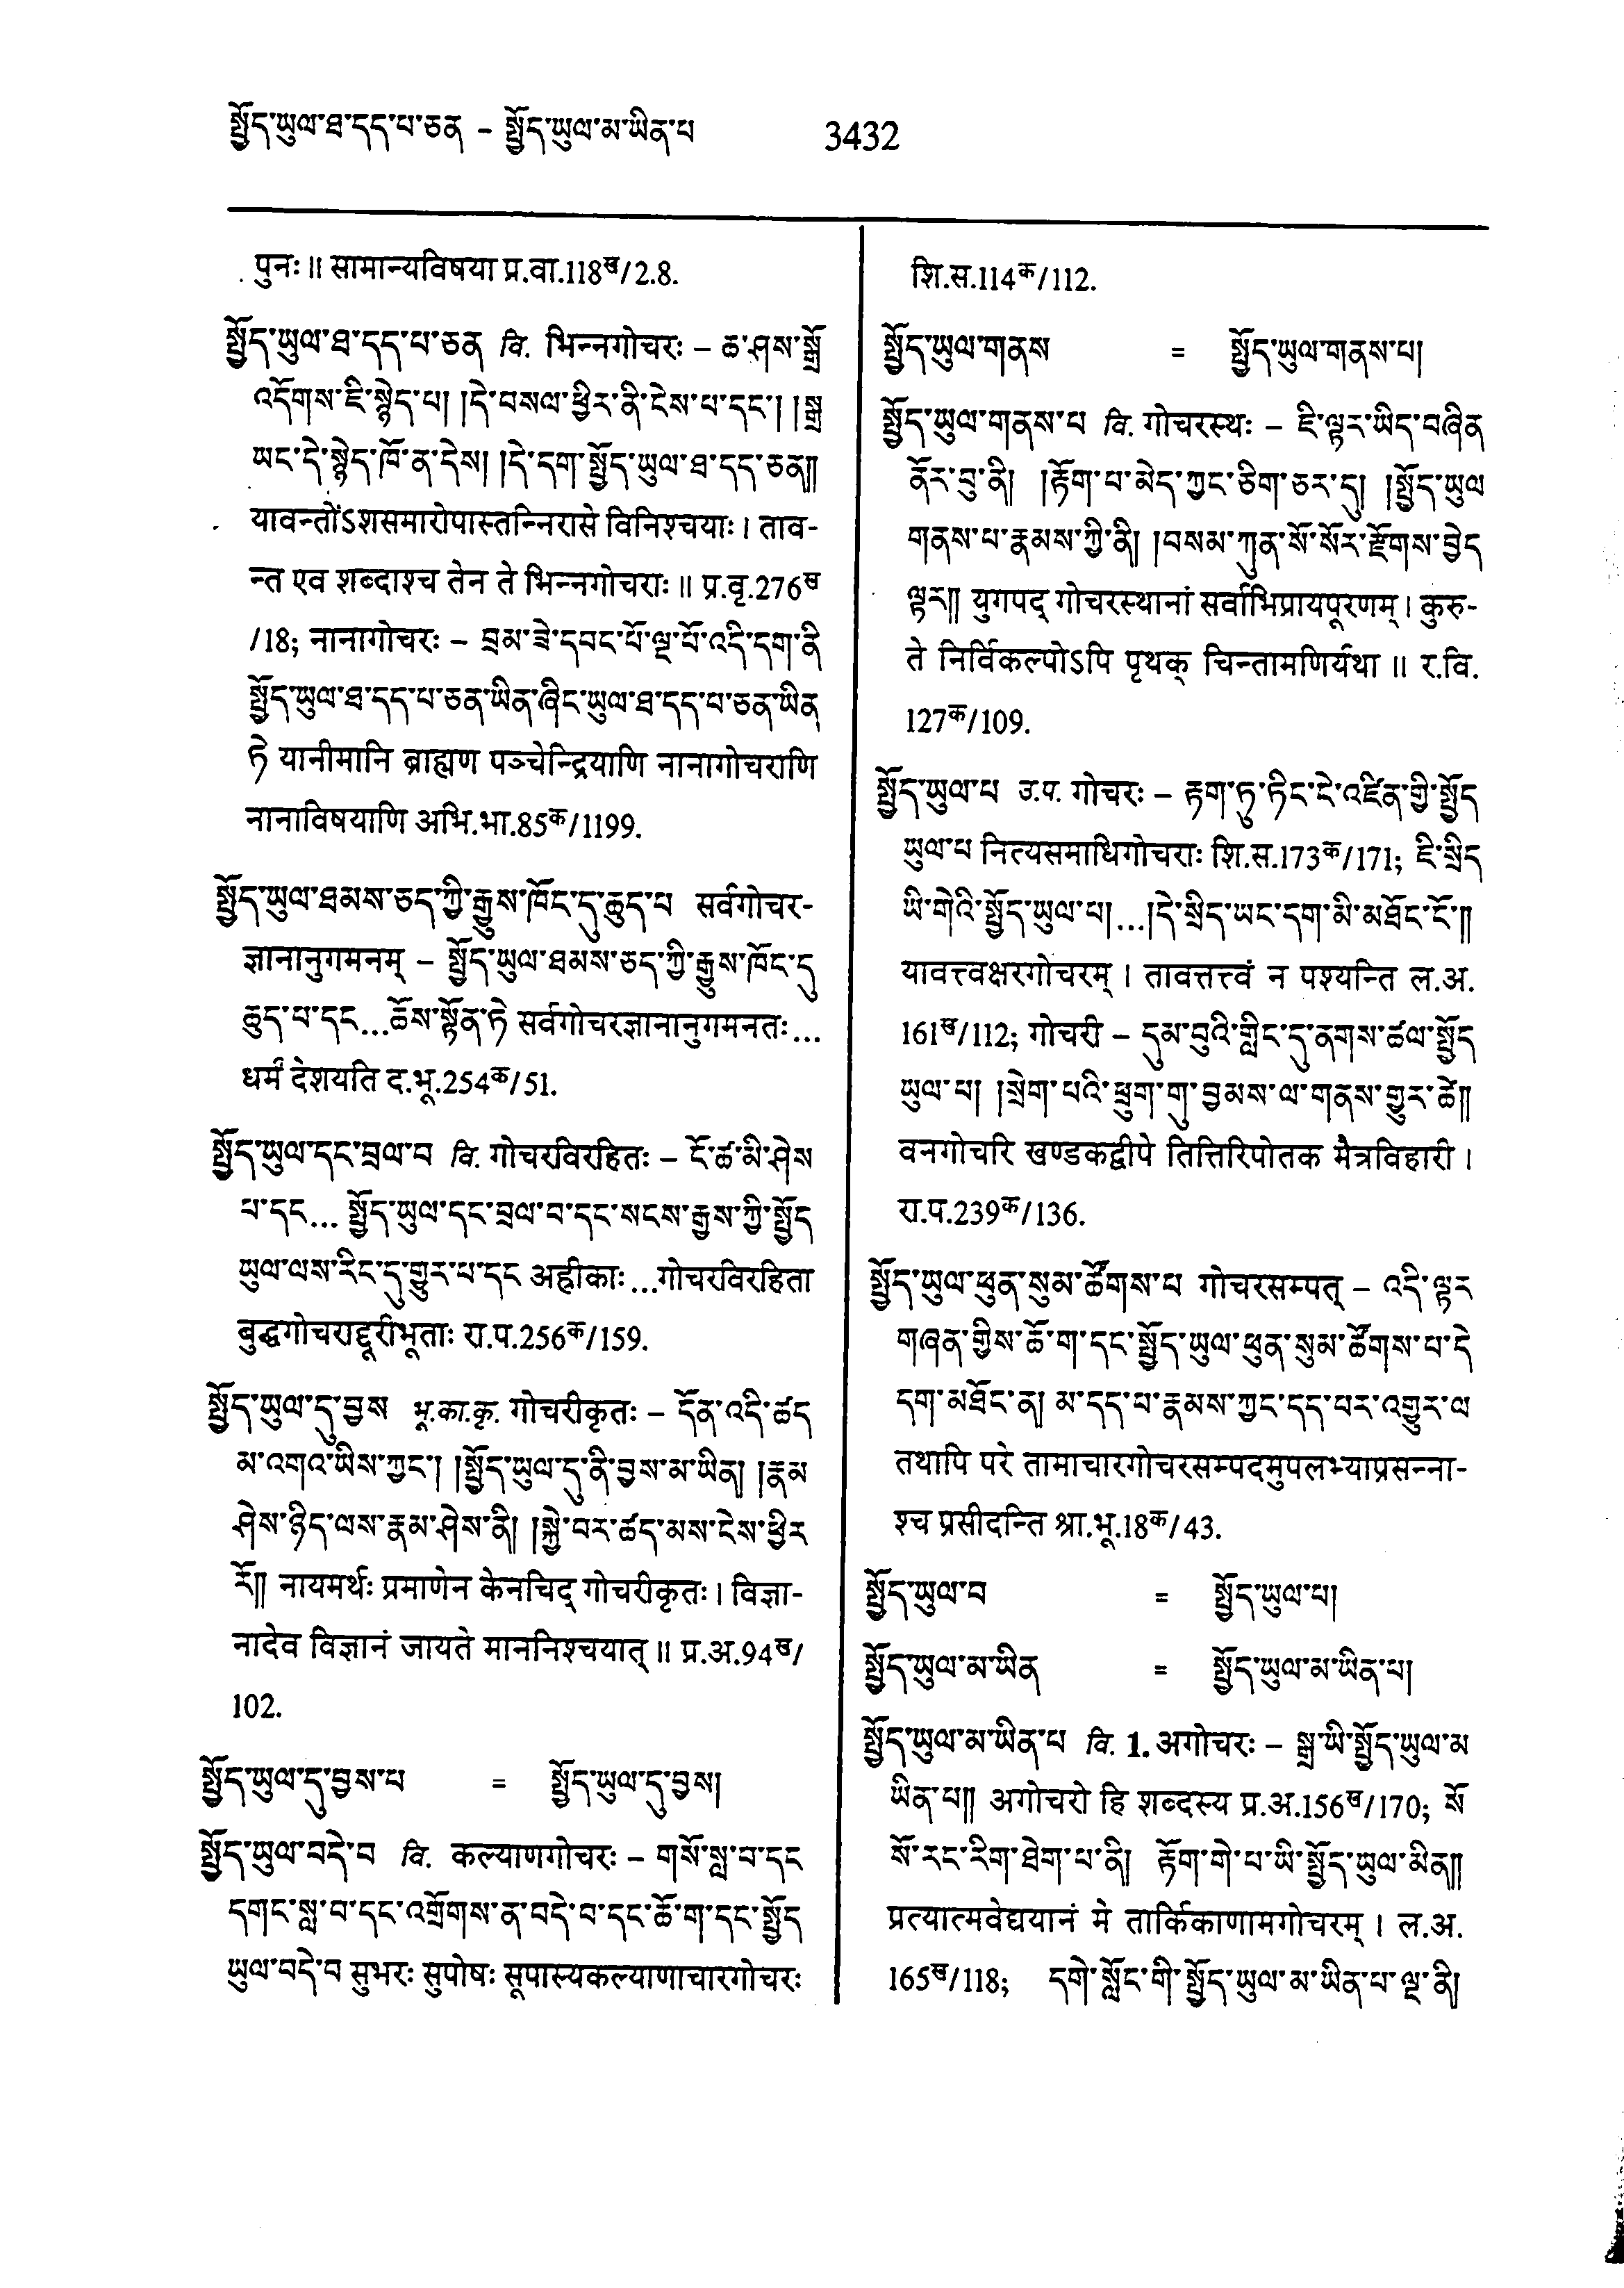 སྤྱོད་ཡུལ་ཐ་དད་པ་ཅན – སྤྱོད་ཡུལ་མ་ཡིན་པ 3432
पुनः॥ सामान्यविषया प्र.वा.118ख/2.8.
སྤྱོད་ཡུལ་ཐ་དད་པ་ཅན वि. भिन्नगोचरः – ཆ་ཤས་སྒྲོ
འདོགས་ཇི་སྙེད་པ། །དེ་བསལ་ཕྱིར་ནི་ངེས་པ་དང་། །སྒྲ
ཡང་དེ་སྙེད་ཁོ་ན་དེས། །དེ་དག་སྤྱོད་ཡུལ་ཐ་དད་ཅན༎
यावन्तोंऽशसमारोपास्तन्निरासे विनिश्चयाः। ताव-
न्त एव शब्दाश्च तेन ते भिन्नगोचराः॥ प्र.वृ.276ख
/18; नानागोचरः – བྲམ་ཟེ་དབང་པོ་ལྔ་པོ་འདི་དག་ནི
སྤྱོད་ཡུལ་ཐ་དད་པ་ཅན་ཡིན་ཞིང་ཡུལ་ཐ་དད་པ་ཅན་ཡིན
ཏེ यानीमानि ब्राह्मण पञ्चेन्द्रियाणि नानागोचराणि
नानाविषयाणि अभि.भा.85क/1199.
སྤྱོད་ཡུལ་ཐམས་ཅད་ཀྱི་རྒྱུས་ཁོང་དུ་ཆུད་པ सर्वगोचर-
ज्ञानानुगमनम् – སྤྱོད་ཡུལ་ཐམས་ཅད་ཀྱི་རྒྱུས་ཁོང་དུ
ཆུད་པ་དང...ཆོས་སྟོན་ཏེ सर्वगोचरज्ञानानुगमनतः...
धर्मं देशयति द.भू.254क/51.
སྤྱོད་ཡུལ་དང་བྲལ་བ वि. गोचरविरहितः – ངོ་ཚ་མི་ཤེས
པ་དང... སྤྱོད་ཡུལ་དང་བྲལ་བ་དང་སངས་རྒྱས་ཀྱི་སྤྱོད
ཡུལ་ལས་རིང་དུ་གྱུར་པ་དང अह्रीकाः...गोचरविरहिता
बुद्धगोचराद्दूरीभूताः रा.प.256क/159.
སྤྱོད་ཡུལ་དུ་བྱས भू.का.कृ. गोचरीकृतः – དོན་འདི་ཚད
མ་འགའ་ཡིས་ཀྱང་། །སྤྱོད་ཡུལ་དུ་ནི་བྱས་མ་ཡིན། །རྣམ
ཤེས་ཉིད་ལས་རྣམ་ཤེས་ནི། །སྐྱེ་བར་ཚད་མས་ངེས་ཕྱིར
རོ༎ नायमर्थः प्रमाणेन केनचिद् गोचरीकृतः। विज्ञा-
नादेव विज्ञानं जायते माननिश्चयात्॥ प्र.अ.94ख/
102.
སྤྱོད་ཡུལ་དུ་བྱས་པ = སྤྱོད་ཡུལ་དུ་བྱས།
སྤྱོད་ཡུལ་བདེ་བ वि. कल्याणगोचरः – གསོ་སླ་བ་དང
དགང་སླ་བ་དང་འགྲོགས་ན་བདེ་བ་དང་ཆོ་ག་དང་སྤྱོད
ཡུལ་བདེ་བ सुभरः सुपोषः सूपास्यकल्याणाचारगोचरः
शि.स.114क/112.
སྤྱོད་ཡུལ་གནས = སྤྱོད་ཡུལ་གནས་པ།
སྤྱོད་ཡུལ་གནས་པ वि. गोचरस्थः – ཇི་ལྟར་ཡིད་བཞིན
ནོར་བུ་ནི། །རྟོག་པ་མེད་ཀྱང་ཅིག་ཅར་དུ། །སྤྱོད་ཡུལ
གནས་པ་རྣམས་ཀྱི་ནི། །བསམ་ཀུན་སོ་སོར་རྫོགས་བྱེད
ལྟར༎ युगपद् गोचरस्थानां सर्वाभिप्रायपूरणम्। कुरु-
ते निर्विकल्पोऽपि पृथक् चिन्तामणिर्यथा॥ र.वि.
127क/109.
སྤྱོད་ཡུལ་པ उ.प. गोचरः – རྟག་ཏུ་ཏིང་ངེ་འཛིན་གྱི་སྤྱོད
ཡུལ་པ नित्यसमाधिगोचराः शि.स.173क/171; ཇི་སྲིད
ཡི་གེའི་སྤྱོད་ཡུལ་པ།...།དེ་སྲིད་ཡང་དག་མི་མཐོང་ངོ་༎
यावत्त्वक्षरगोचरम्। तावत्तत्त्वं न पश्यन्ति ल.अ.
161ख/112; गोचरी – དུམ་བུའི་གླིང་དུ་ནགས་ཚལ་སྤྱོད
ཡུལ་པ། །སྲེག་པའི་ཕྲུག་གུ་བྱམས་ལ་གནས་གྱུར་ཚེ༎
वनगोचरि खण्डकद्वीपे तित्तिरिपोतक मैत्रविहारी।
रा.प.239क/136.
སྤྱོད་ཡུལ་ཕུན་སུམ་ཚོགས་པ गोचरसम्पत् – འདི་ལྟར
གཞན་གྱིས་ཆོ་ག་དང་སྤྱོད་ཡུལ་ཕུན་སུམ་ཚོགས་པ་དེ
དག་མཐོང་ན། མ་དད་པ་རྣམས་ཀྱང་དད་པར་འགྱུར་ལ
तथापि परे तामाचारगोचरसम्पदमुपलभ्याप्रसन्ना-
श्च प्रसीदन्ति श्रा.भू.18क/43.
སྤྱོད་ཡུལ་བ = སྤྱོད་ཡུལ་པ།
སྤྱོད་ཡུལ་མ་ཡིན = སྤྱོད་ཡུལ་མ་ཡིན་པ།
སྤྱོད་ཡུལ་མ་ཡིན་པ वि. 1. अगोचरः – སྒྲ་ཡི་སྤྱོད་ཡུལ་མ
ཡིན་པ༎ अगोचरो हि शब्दस्य प्र.अ.156ख/170; སོ
སོ་རང་རིག་ཐེག་པ་ནི། རྟོག་གེ་པ་ཡི་སྤྱོད་ཡུལ་མིན༎
प्रत्यात्मवेद्ययानं मे तार्किकाणामगोचरम्। ल.अ.
165ख/118; དགེ་སློང་གི་སྤྱོད་ཡུལ་མ་ཡིན་པ་ལྔ་ནི།